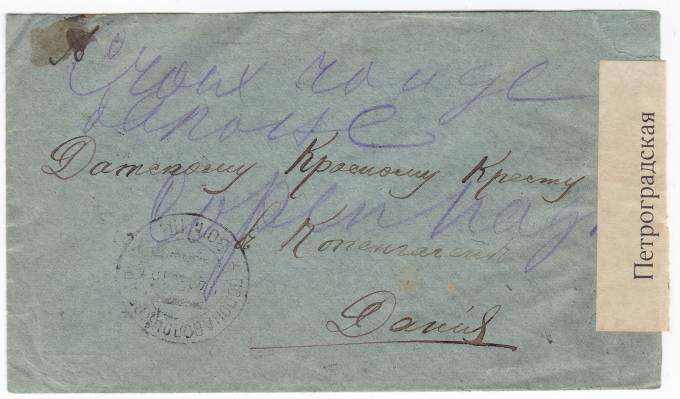 Croix rouge
danoise
Датскому Красному Кресту
Copenhag
в Копенгагенѣ
Данія
Петроградская